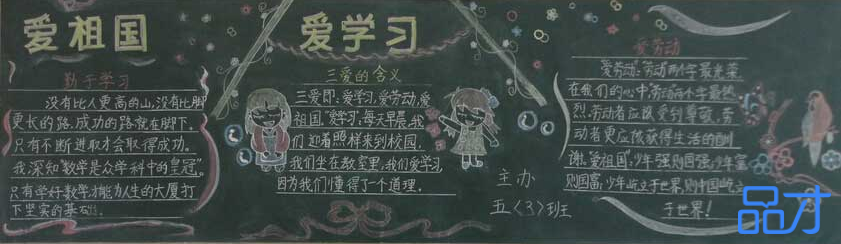 爱祖国
勤于学习
没有比人更高的山,没有比脚
更长的路,成功的路就在脚下。
只有不断进取才会取得成功。
我深知"数学是众学科中的皇冠"。
只有学好数学才能为人生的大厦打
下坚实的基础。
爱学习
三爱的含义
三爱即:爱学习,爱劳动,爱
祖国,"爱学习",每天早晨,我
们迎着照样来到校园.
我们坐在教室里,我们爱学习,
因为我们懂得了一个道理.
主办
五〈3〉班
爱劳动
爱劳动:劳动两个字最光荣
在我们的心中劳动两个字最热
烈.劳动者应该受到尊敬,劳
动者更应该获得生活的酬
谢."爱祖国",少年强则国强,少年富
则国富,少年屹立于世界,则中国屹立
于世界!
品才